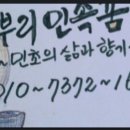 부리 민속품
~민초의 삶과 향기~
010~7372~16